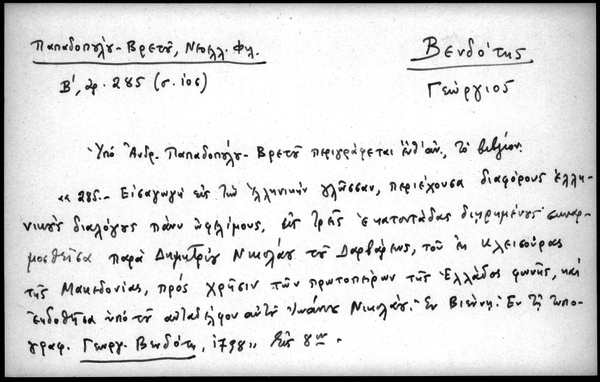 Παπαδοπούλου-Βρετοῦ, Νεοελλ. Φιλ.
Βενδότης
Β', ἀρ. 285 (σ. 106)
Γεώργιος
Ὑπὸ Ἀνδρ. Παπαδοπούλου-Βρετοῦ περιγράφεται ἐνθ' ἀν., τὸ βιβλίον:
«285.- Εἰσαγωγὴ εἰς τὴν ἑλληνικὴν γλῶσσαν, περιέχουσα διαφόρους ἑλλη-
νικοὺς διαλόγους πάνυ ὠφελίμους, εἰς τρεῖς ἑκατοντάδας διῃρημένους συναρ-
μοσθεῖσα παρὰ Δημητρίου Νικολάου τοῦ Δαρβάρεως, τοῦ ἐκ Κλεισούρας
τῆς Μακεδονίας, πρὸς χρῆσιν τῶν πρωτοπείρων τῆς Ἑλλάδος φωνῆς, καὶ
ἐκδοθεῖσα ὑπὸ τοῦ αὐταδέλφου αὐτοῦ Ἰωάννου Νικολάου. Ἐν Βιέννῃ. Ἐν τῇ τυπο-
γραφ. Γεωργ. Βενδότη, 1798» Εἰς 8ον.